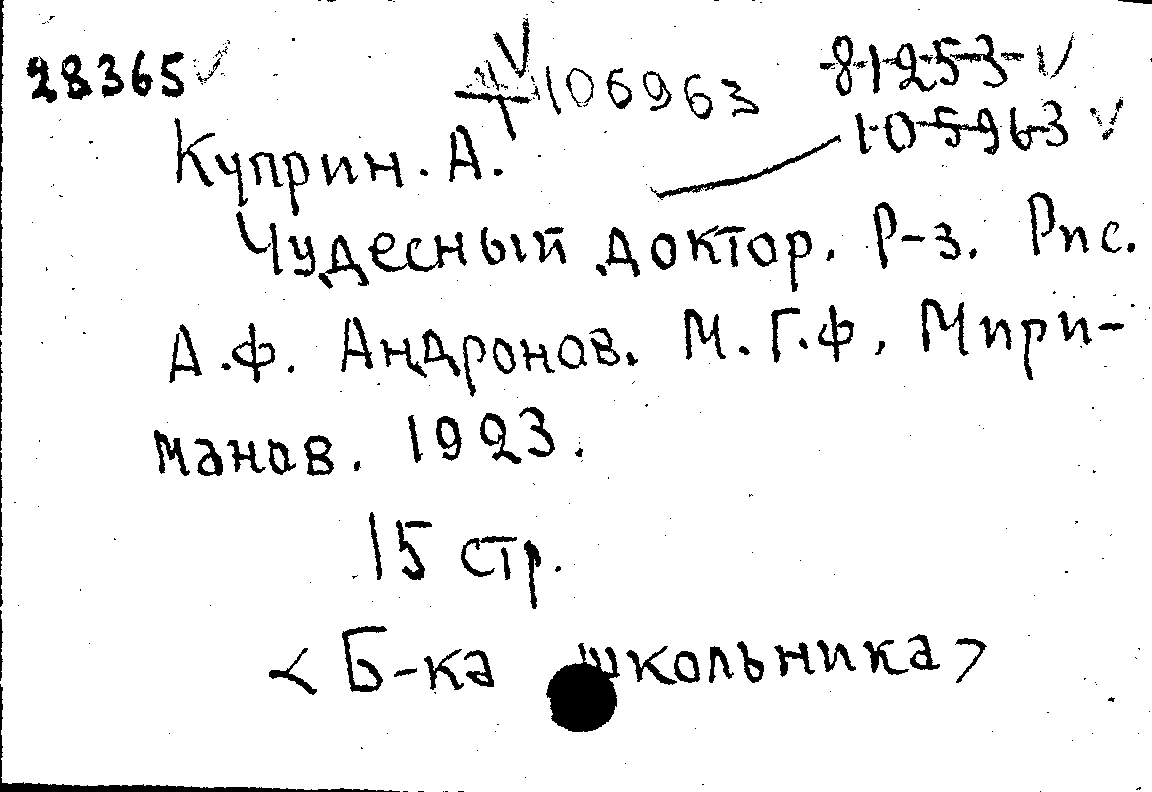 28365 106963 81253
105963
Куприн. А.
Чудесный доктор. Р-з. Рис.
А.Ф. Андронов. М. Г.Ф. Мири-
манов. 1923.
15 стр.
<Б-ка школьника>